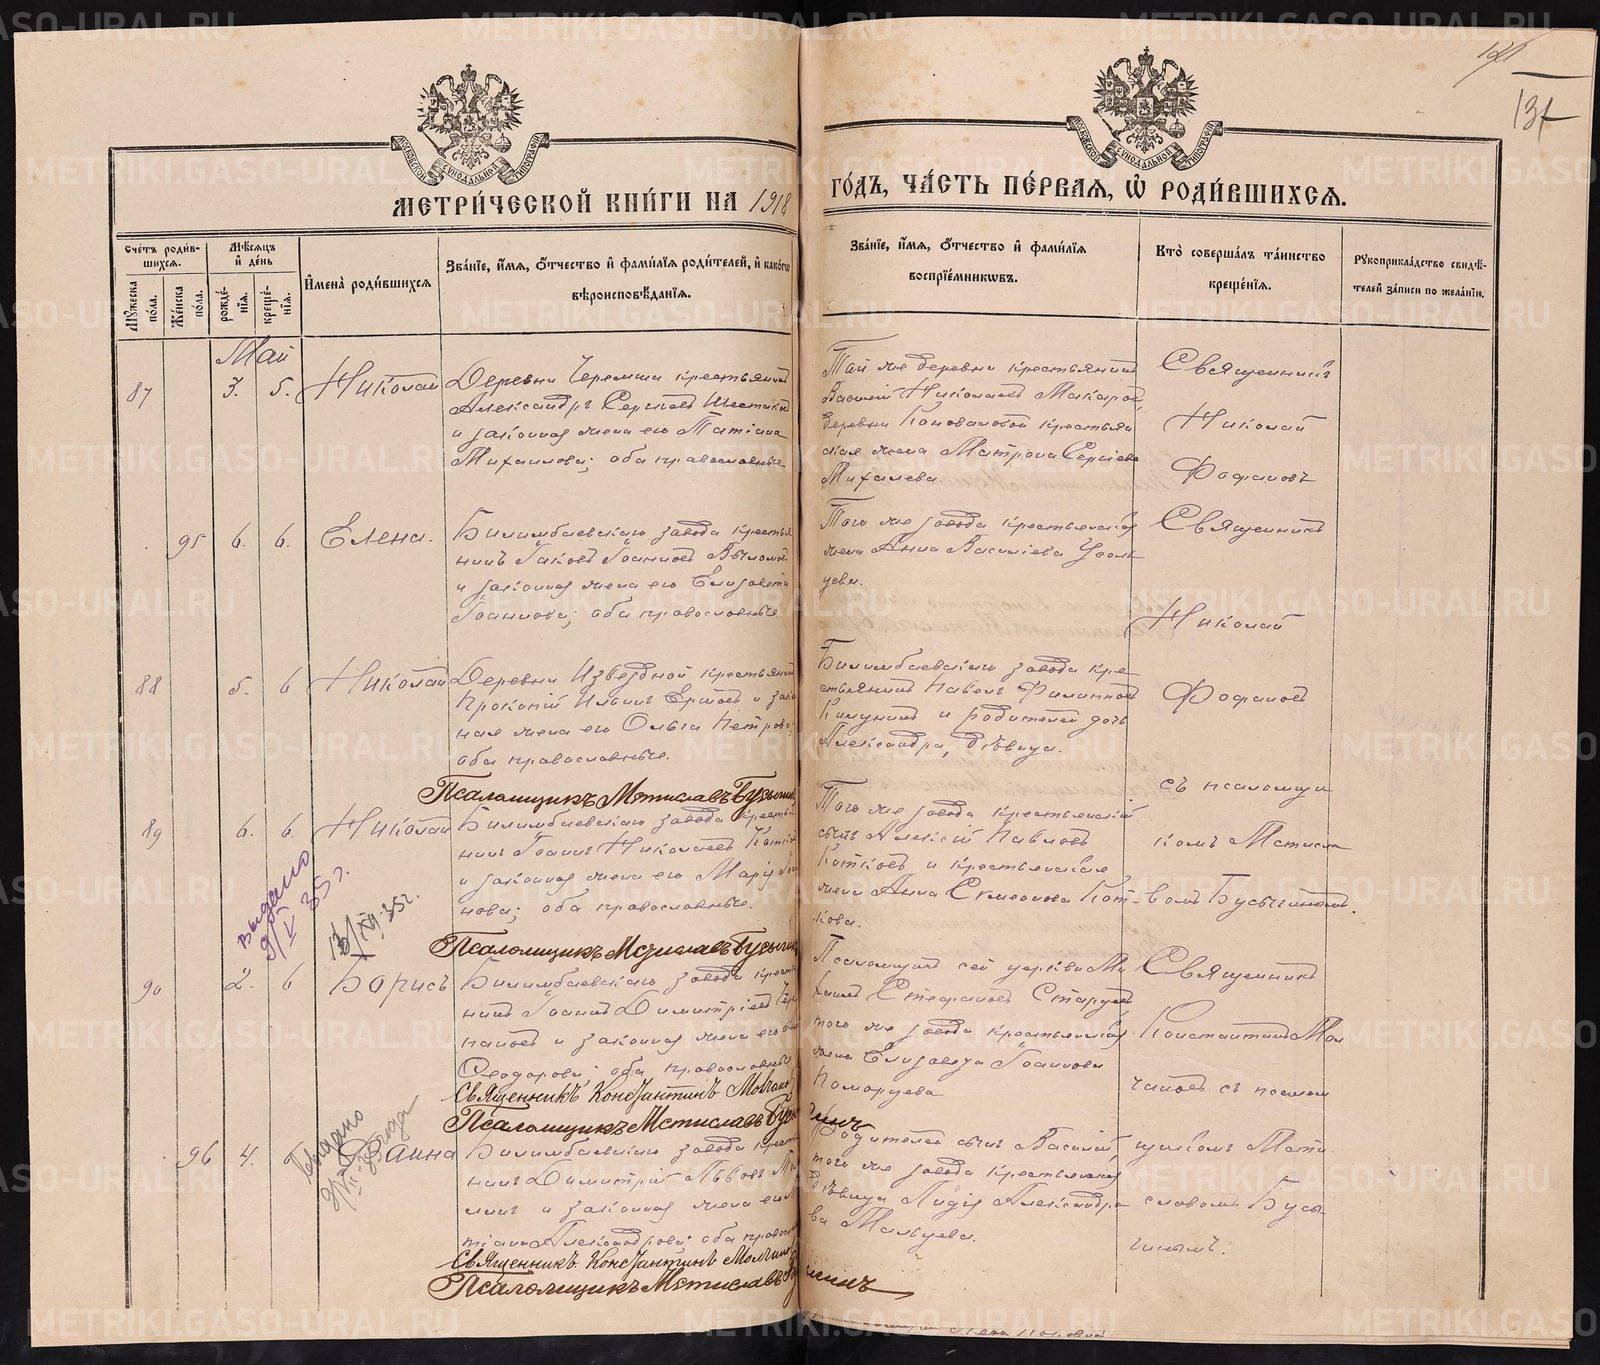 131
МЕТРИ́ЧЕСКОЙ КНИ́ГИ НА 1918
ГО́ДЪ, ЧА́СТЬ ПЕ́РВАЯ, Ѡ҆ РОДИ́ВШИХСЯ.
Сче́тъ роди́вшихся.
Му́жеска по́ла.
Же́нска по́ла.
Мѣ́сяцъ и҆ де́нь
рожде́нїя.
креще́нїя.
И҆мена̀ роди́вшихся
Зва́нїе, и҆́мя, ѻ҆́тчество и҆ фами́лїя роди́телей, и҆ како́гѡ
вѣроисповѣ́данїя.
Зва́нїе, и҆́мя, ѻ҆́тчество и҆ фами́лїя
воспрїе́мникѡвъ.
Кто̀ соверша́лъ та́инство
креще́нїя.
Рꙋкоприкла́дство свидѣ́-
телей за́писи по жела́нїю.
Май
87 3. 5. Николай
Деревни Черемши крестьянинъ
Александръ Сергѣевъ Шестаков
и законная жена его Татіана
Михаилова; оба православные
Той же деревни крестьянинъ
Василій Николаевъ Макаров,
деревни Коноваловой крестьян
ская жена Матрона Сергіева
Михалева.
Священникъ
Николай
Фофановъ
95 6. 6. Елена.
Билимбаевскаго завода крестья
нинъ Іаковъ Іоанновъ
и законная жена его Елизавета
Іоаннова; оба православные
Того же завода крестьянская
жена Анна Василіева
цева.
Священникъ
Николай
88 5. 6 Николай
Деревни Извѣздной крестьянин
Прокопій Ильинъ Ершов и закон
ная жена его Ольга Петрова;
оба православные.
Псаломщикъ Мстиславъ Бусыгинъ
Билимбаевскаго завода кре
стьянинъ Павелъ Филиппов
и родителей дочь
Александра, дѣвица.
Фофановъ
съ псаломщи
89 6. 6. Николай
Билимбаевскаго завода крестья
нинъ Іоаннъ Николаевъ
и законная жена его Марія
нова; оба православные.
Псаломщикъ Мстиславъ Бусыгин
Того же завода крестьянскій
сынъ Алексій Павловъ
Котковъ и крестьянская
жена Анна Симеонова Кот-
кова.
комъ Мстисла
вомъ Бусыгинымъ.
выдано
9/V 35 г.
13/XII 35 г.
90 2. 6 Борисъ
Билимбаевскаго завода крестья
нинъ Іоаннъ Димитріевъ
пановъ и законная жена его
Ѳеодорова; оба православные
Священникъ Константинъ Молчанов
Псаломщикъ Мстиславъ Бусы
гинъ
Псаломщикъ сей церкви Ми
хаилъ Стефановъ Старцев
того же завода крестьянская
жена Елизавета Іоаннова
Поморцева
Священникъ
Константинъ Мол
чановъ съ псалом
96 4. Фаина
Билимбаевскаго завода крестья
нинъ Димитрій Львовъ
и законная жена его
тіана Александрова; оба православ
Священникъ Константинъ Молчанов
Псаломщикъ Мстиславъ Бу
сыгинъ
Родителей сынъ Василій
того же завода крестьянская
дѣвица Лидія Александро
ва Мальцева.
щикомъ Мсти
славомъ Бусы
гинымъ.
METRIKI.GASO-URAL.RU